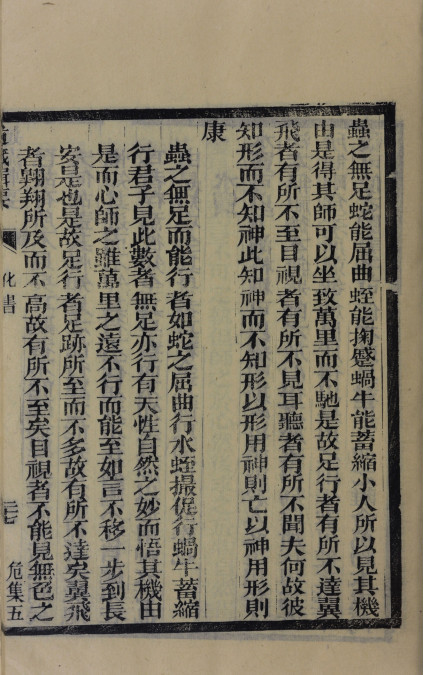 蟲之無足蛇能屈曲蛭能掬蹙蝸牛能蓄縮小人所以見其機
由是得其師可以坐致萬里而不馳是故足行者有所不達翼
飛者有所不至目視者有所不見耳聽者有所不聞夫何故彼
知形而不知神此知神而不知形以形用神則亡以神用形則
康
蟲之無足而能行者如蛇之屈曲行水蛭撮促行蝸牛蓄縮
行君子見此數者無足亦行有天性自然之妙而悟其機由
是而心師之雖萬里之遠不行而能至如言不移一步到長
安是也是故足行者足跡所至而不多故有所不達矣翼飛
者翺翔所及而不高故有所不至矣目視者不能見無色之
道藏輯要
化書
危集五